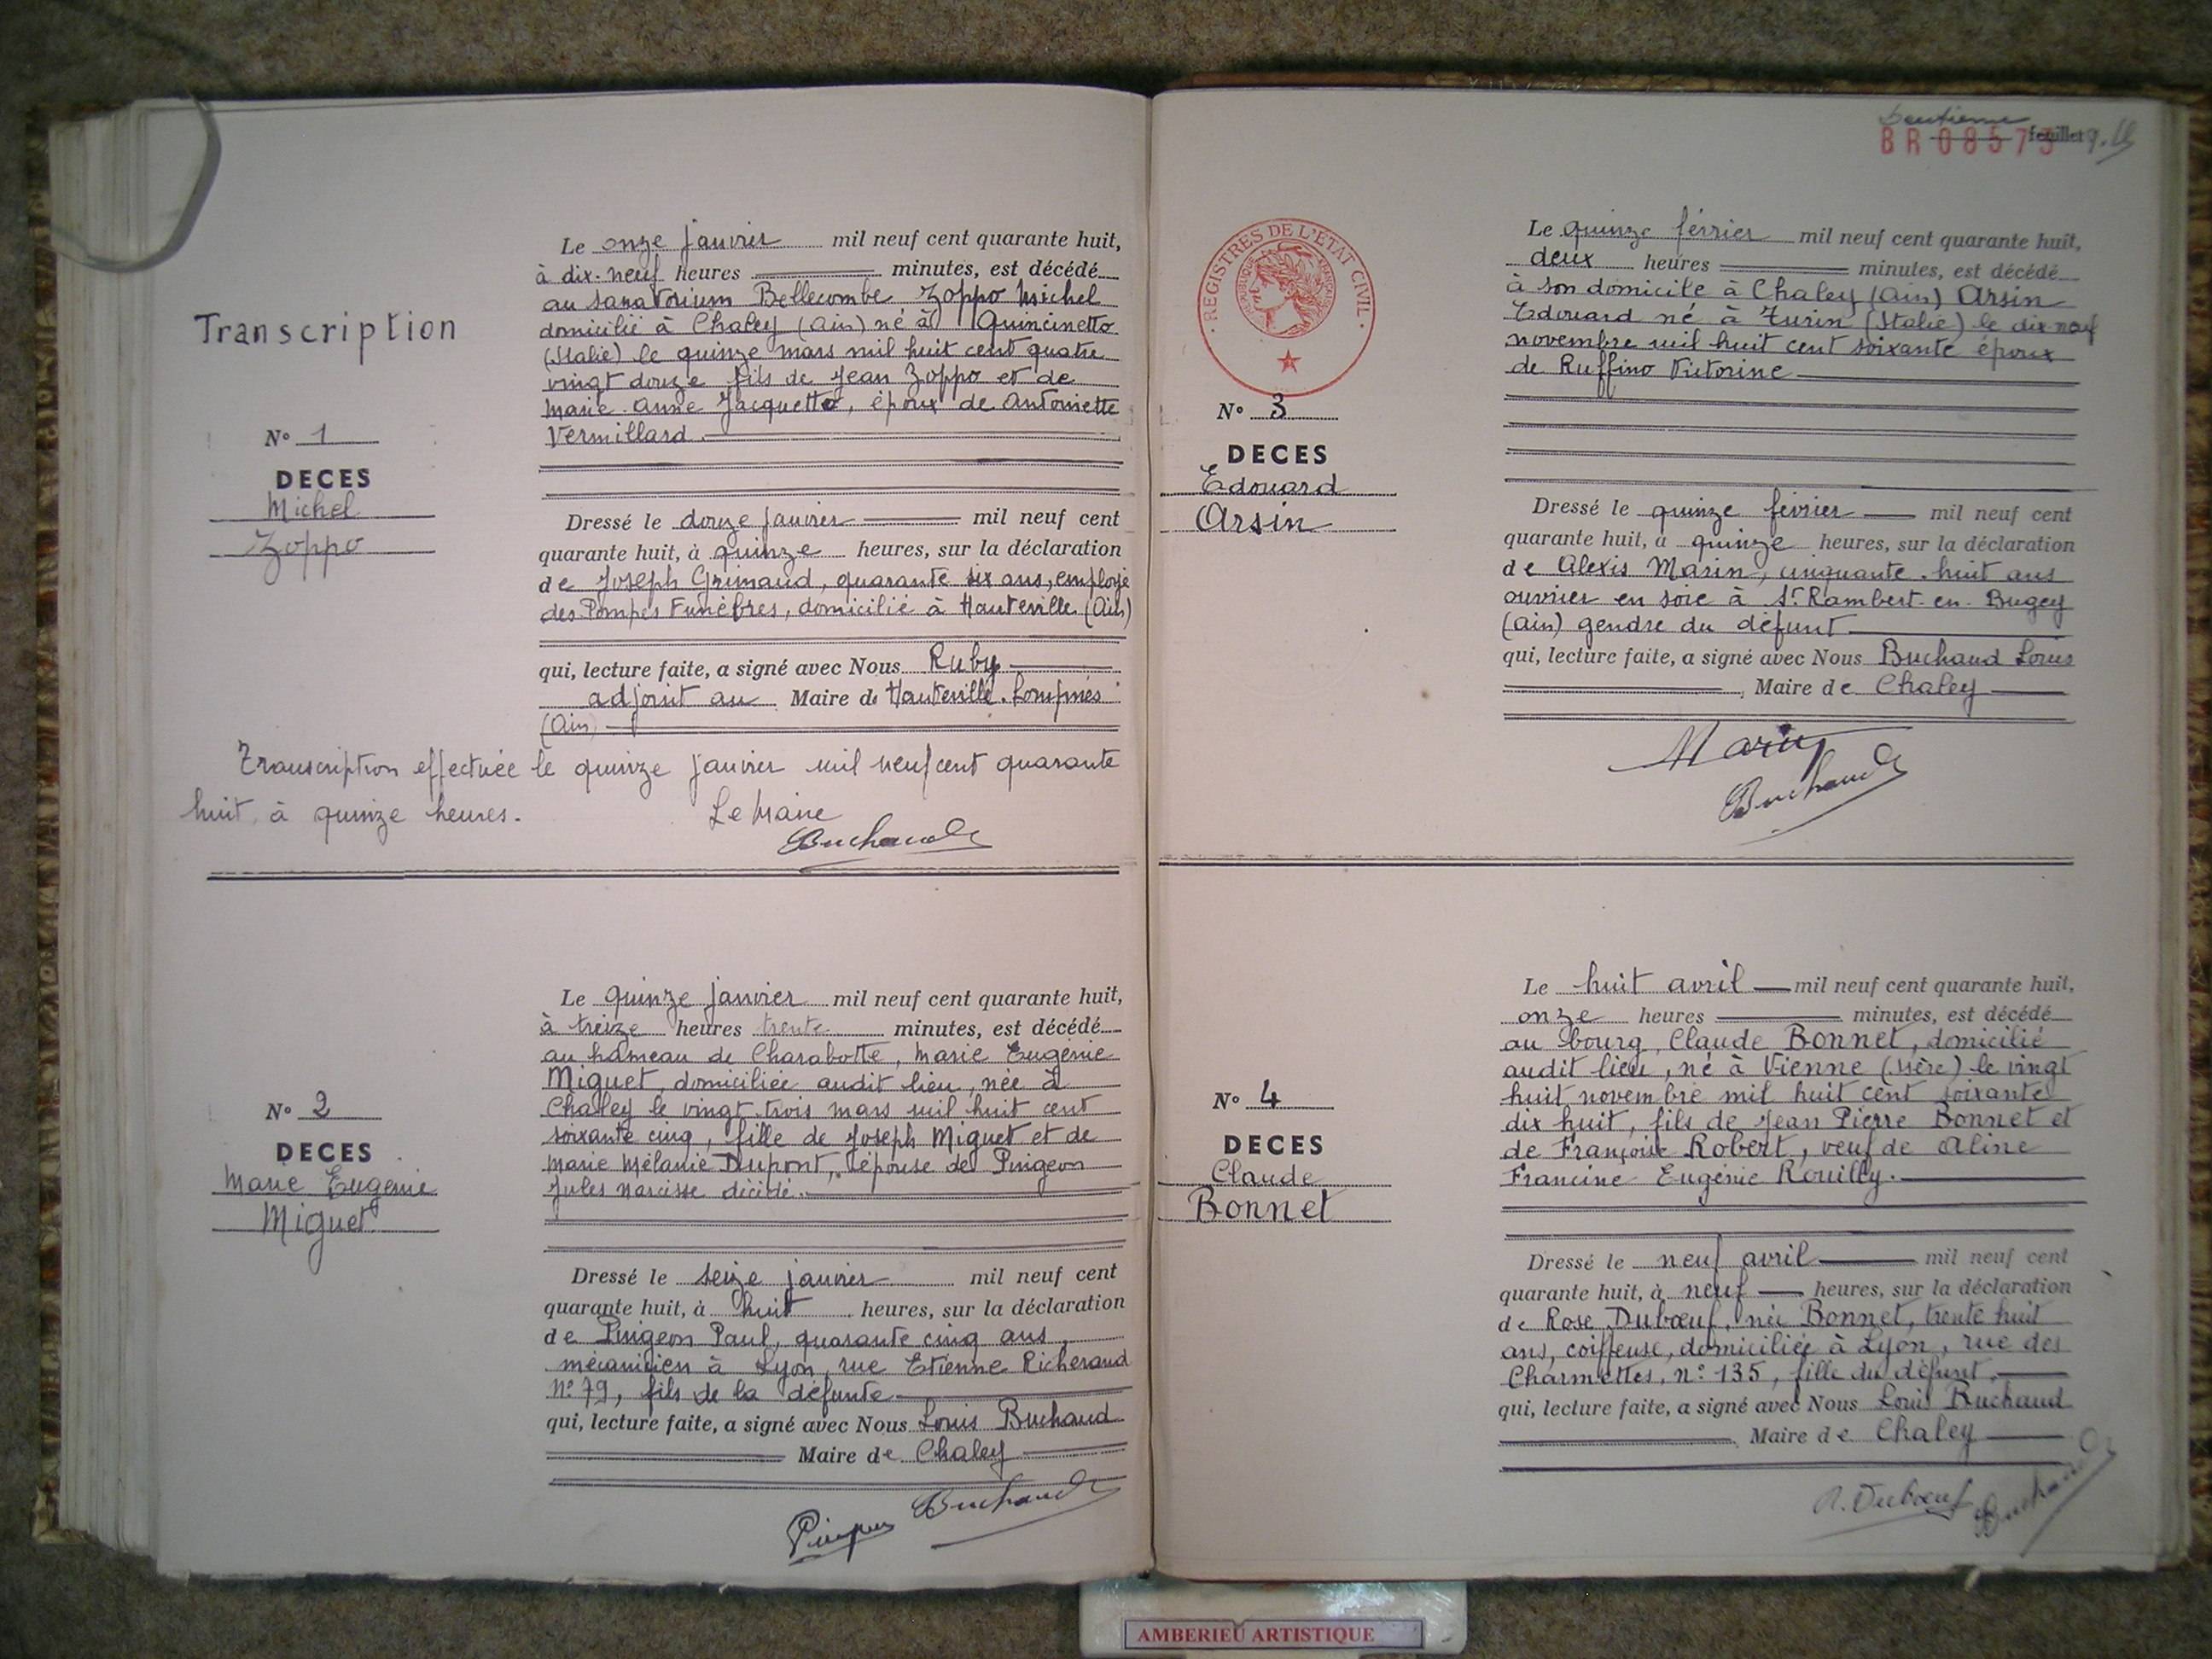 Transcription
N° 1
DECES
Michel
Zoppo
Le onze janvier mil neuf cent quarante huit,
à dix-neuf heures minutes, est décédé
au sanatorium Bellecombe Zoppo Michel
domicilié à Chaley (Ain) né à Quincinetto
(Italie) le quinze mars mil huit cent quatre
vingt douze fils de Jean Zoppo et de
Marie-Anne Jacquetto, époux de Antoinette
Vermillard.
Dressé le douze janvier mil neuf cent
quarante huit, à quinze heures, sur la déclaration
de Joseph Grimaud, quarante six ans, employé
des Pompes Funèbres, domicilié à Hauteville (Ain)
qui, lecture faite, a signé avec Nous Ruby
adjoint au Maire de Hauteville-Lompnès
(Ain)
Transcription effectuée le quinze janvier mil neuf cent quarante
huit, à quinze heures.
Le Maire
Buchaud
N° 2
DECES
Marie Eugénie
Miguet
Le quinze janvier mil neuf cent quarante huit,
à treize heures trente minutes, est décédé
au hameau de Charabotte, Marie Eugénie
Miguet, domiciliée audit lieu, née à
Chaley le vingt-trois mars mil huit cent
soixante cinq, fille de Joseph Miguet et de
Marie Mélanie Dupont, épouse de Pingeon
Jules Narcisse décédé.
Dressé le seize janvier mil neuf cent
quarante huit, à huit heures, sur la déclaration
de Pingeon Paul, quarante cinq ans,
mécanicien à Lyon, rue Etienne Richerand
N° 79, fils de la défunte
qui, lecture faite, a signé avec Nous Louis Buchaud
Maire de Chaley
Pingeon Buchaud
Deuxième feuillet
BR 08573
REGISTRES DE L'ETAT CIVIL
N° 3
DECES
Edouard
Arsin
Le quinze février mil neuf cent quarante huit,
deux heures minutes, est décédé
à son domicile à Chaley (Ain) Arsin
Edouard né à Turin (Italie) le dix neuf
novembre mil huit cent soixante époux
de Ruffino Victorine
Dressé le quinze février mil neuf cent
quarante huit, à quinze heures, sur la déclaration
de Alexis Marin, cinquante-huit ans
ouvrier en soie à St Rambert-en-Bugey
(Ain) gendre du défunt
qui, lecture faite, a signé avec Nous Buchaud Louis
Maire de Chaley
Marin
Buchaud
N° 4
DECES
Claude
Bonnet
Le huit avril mil neuf cent quarante huit,
onze heures minutes, est décédé
au bourg, Claude Bonnet, domicilié
audit lieu, né à Vienne (Isère) le vingt
huit novembre mil huit cent soixante
dix huit, fils de Jean Pierre Bonnet et
de Françoise Robert, veuf de Aline
Francine Eugénie Rouilly.
Dressé le neuf avril mil neuf cent
quarante huit, à neuf heures, sur la déclaration
de Rose Dubœuf, née Bonnet, trente huit
ans, coiffeuse, domiciliée à Lyon, rue des
Charmettes, n° 135, fille du défunt,
qui, lecture faite, a signé avec Nous Louis Buchaud
Maire de Chaley
R. Dubœuf Buchaud
AMBERIEU ARTISTIQUE